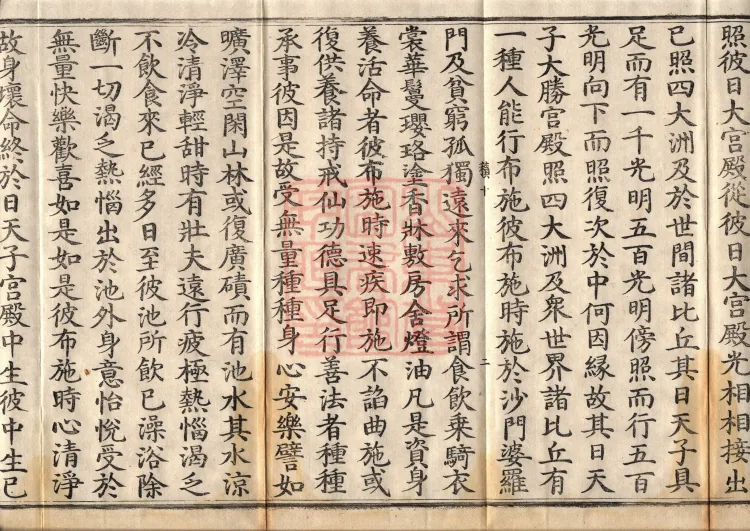 照彼日大宮殿從彼日大宮殿光相相接出
已照四大洲及於世間諸比丘其日天子具
足而有一千光明五百光明傍照而行五百
光明向下而照復次於中何因緣故其日天
子大勝宮殿照四大洲及眾世界諸比丘有
一種人能行布施彼布施時施於沙門婆羅
門及貧窮孤獨遠來乞求所謂食飲乘騎衣
裳華鬘瓔珞塗香牀敷房舍燈油凡是資身
養活命者彼布施時速疾即施不諂曲施或
復供養諸持戒仙功德具足行善法者種種
承事彼因是故受無量種種身心安樂譬如
曠澤空閑山林或復廣磧而有池水其水涼
冷清淨輕甜時有壯夫遠行疲極熱惱渴乏
不飲食來已經多日至彼池所飲已澡浴除
斷一切渴乏熱惱出於池外身意怡悅受於
無量快樂歡喜如是如是彼布施時心清淨
故身壞命終於日天子宮殿中生彼中生已